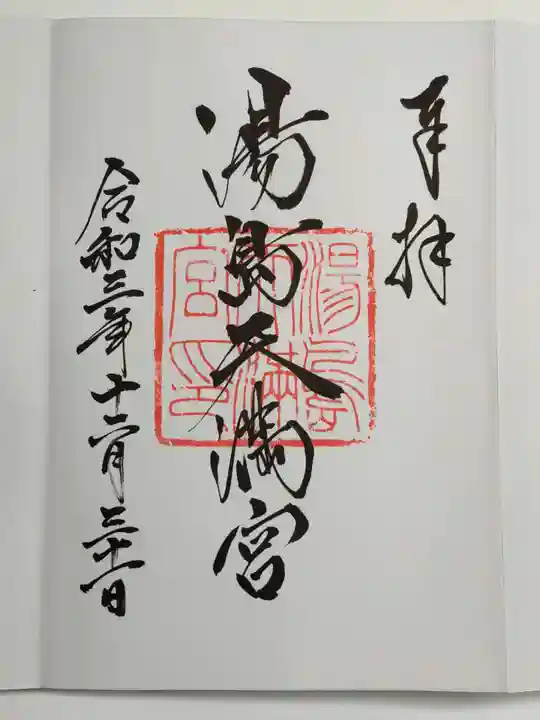 奉拝
湯島天満宮
湯島天満宮印
令和三年十二月三十一日